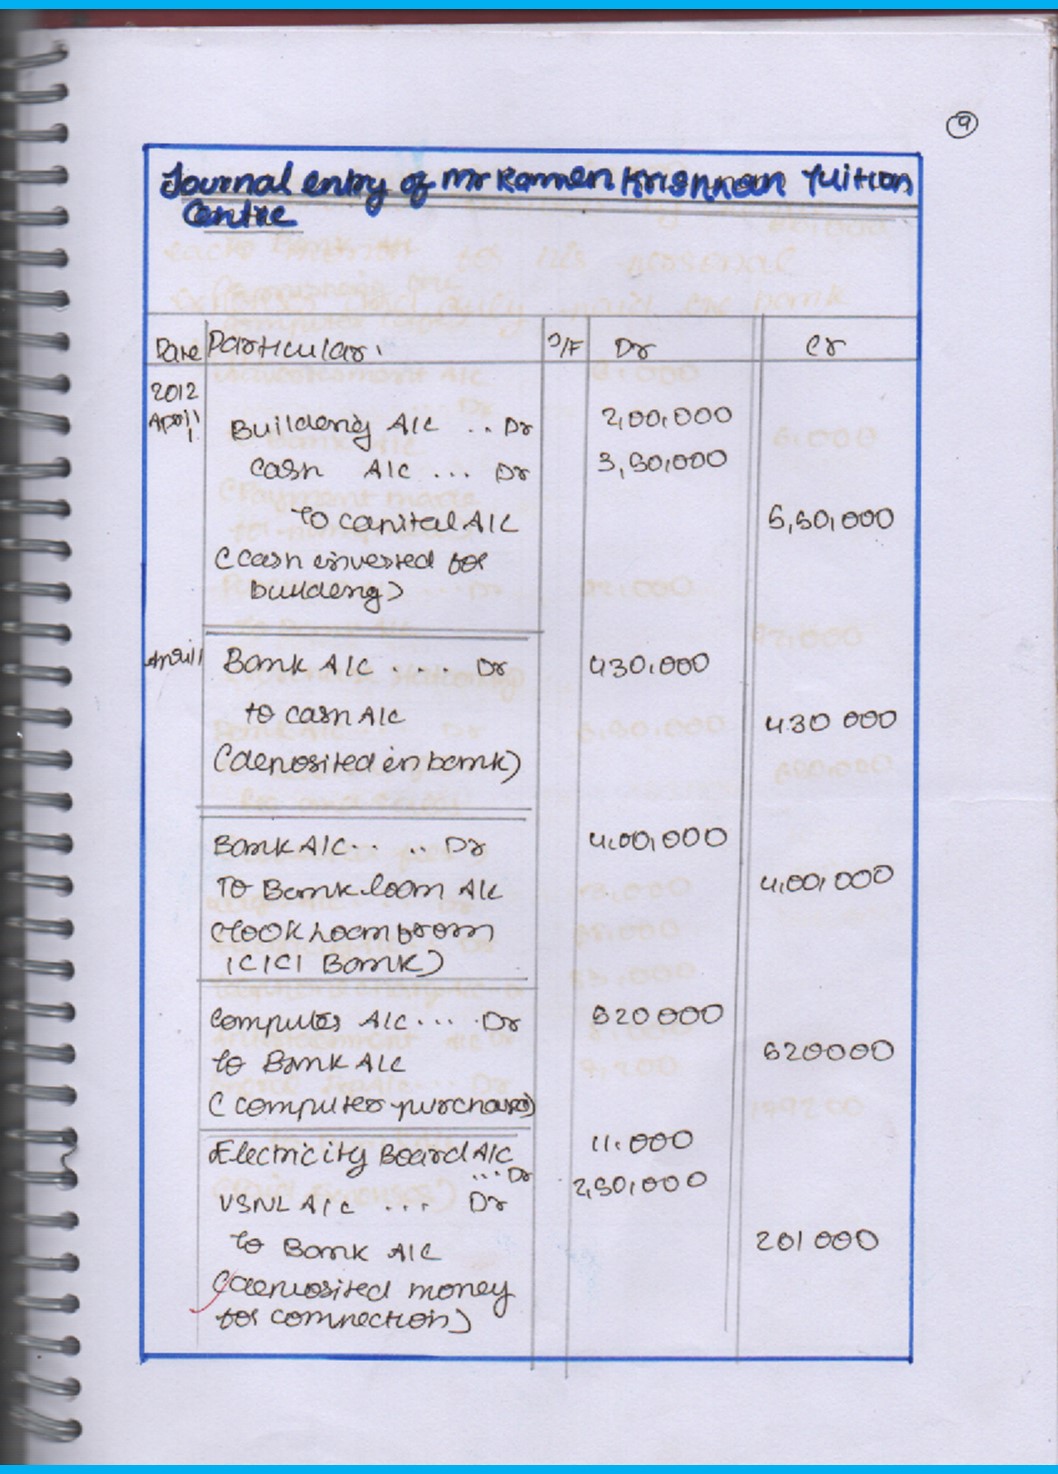 9
Journal entry of Mr Ramen Krishnan Tuition
Centre
Date Particular. J/F Dr Cr
2012
April 1 Building A/c .. Dr 2,00,000
cash A/c ... Dr 3,50,000
To capital A/c 5,50,000
(cash invested for
building)
April 1 Bank A/c .... Dr 430,000
to cash A/c 430 000
(deposited in bank)
Bank A/c.. .. Dr 4,00,000
To Bank loan A/c 4,00,000
(took loan from
ICICI Bank)
Computer A/c... . Dr 520000
to Bank A/c 520000
(computer purchase)
Electricity Board A/c 11,000
... Dr
VSNL A/c ... Dr 2,50,000
to Bank A/c 261000
(deposited money
for connection)